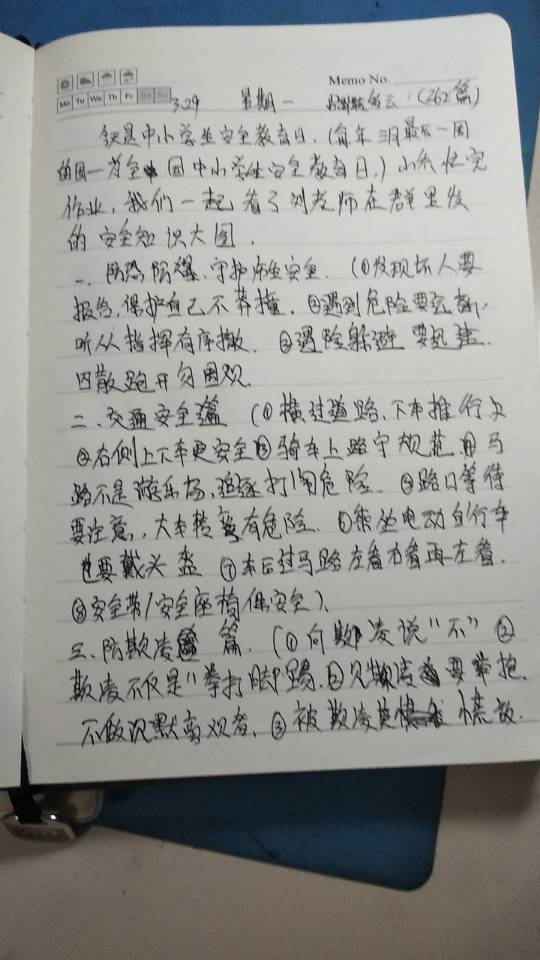 Memo No.
Mo Tu We Th Fr Sa Su
3.29 星期一 (262篇)
今天是中小学生安全教育日,(每年三月最后一周
的周一为全国中小学生安全教育日。)小 忙完
作业,我们一起看了刘老师在群里发
的安全知识大图.
一、防恐防爆,守护 生安全. (①发现坏人要
报告,保护自己不莽撞. ②遇到危险要 断,
听从指挥有序撤. ③遇险躲避要迅速.
四散跑开勿围观.
二、交通安全篇 (①横过道路,下车推行
②右侧上下车更安全③骑车上路守规范.④马
路不是游乐场,追逐打闹危险. ⑤路口等待
要注意,大车转弯有危险. ⑥乘坐电动自行车
也要戴头盔 ⑦车后过马路左看右看再左看.
⑧安全带/安全座椅保安全).
三、防欺凌篇. (①向欺凌说"不" ②
欺凌不仅是"拳打脚踢. ②见欺凌要举报.
不做沉默旁观者. ③被欺凌莫慌